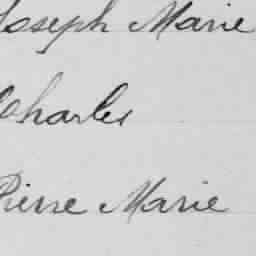 Joseph Marie
Charles
Pierre Marie